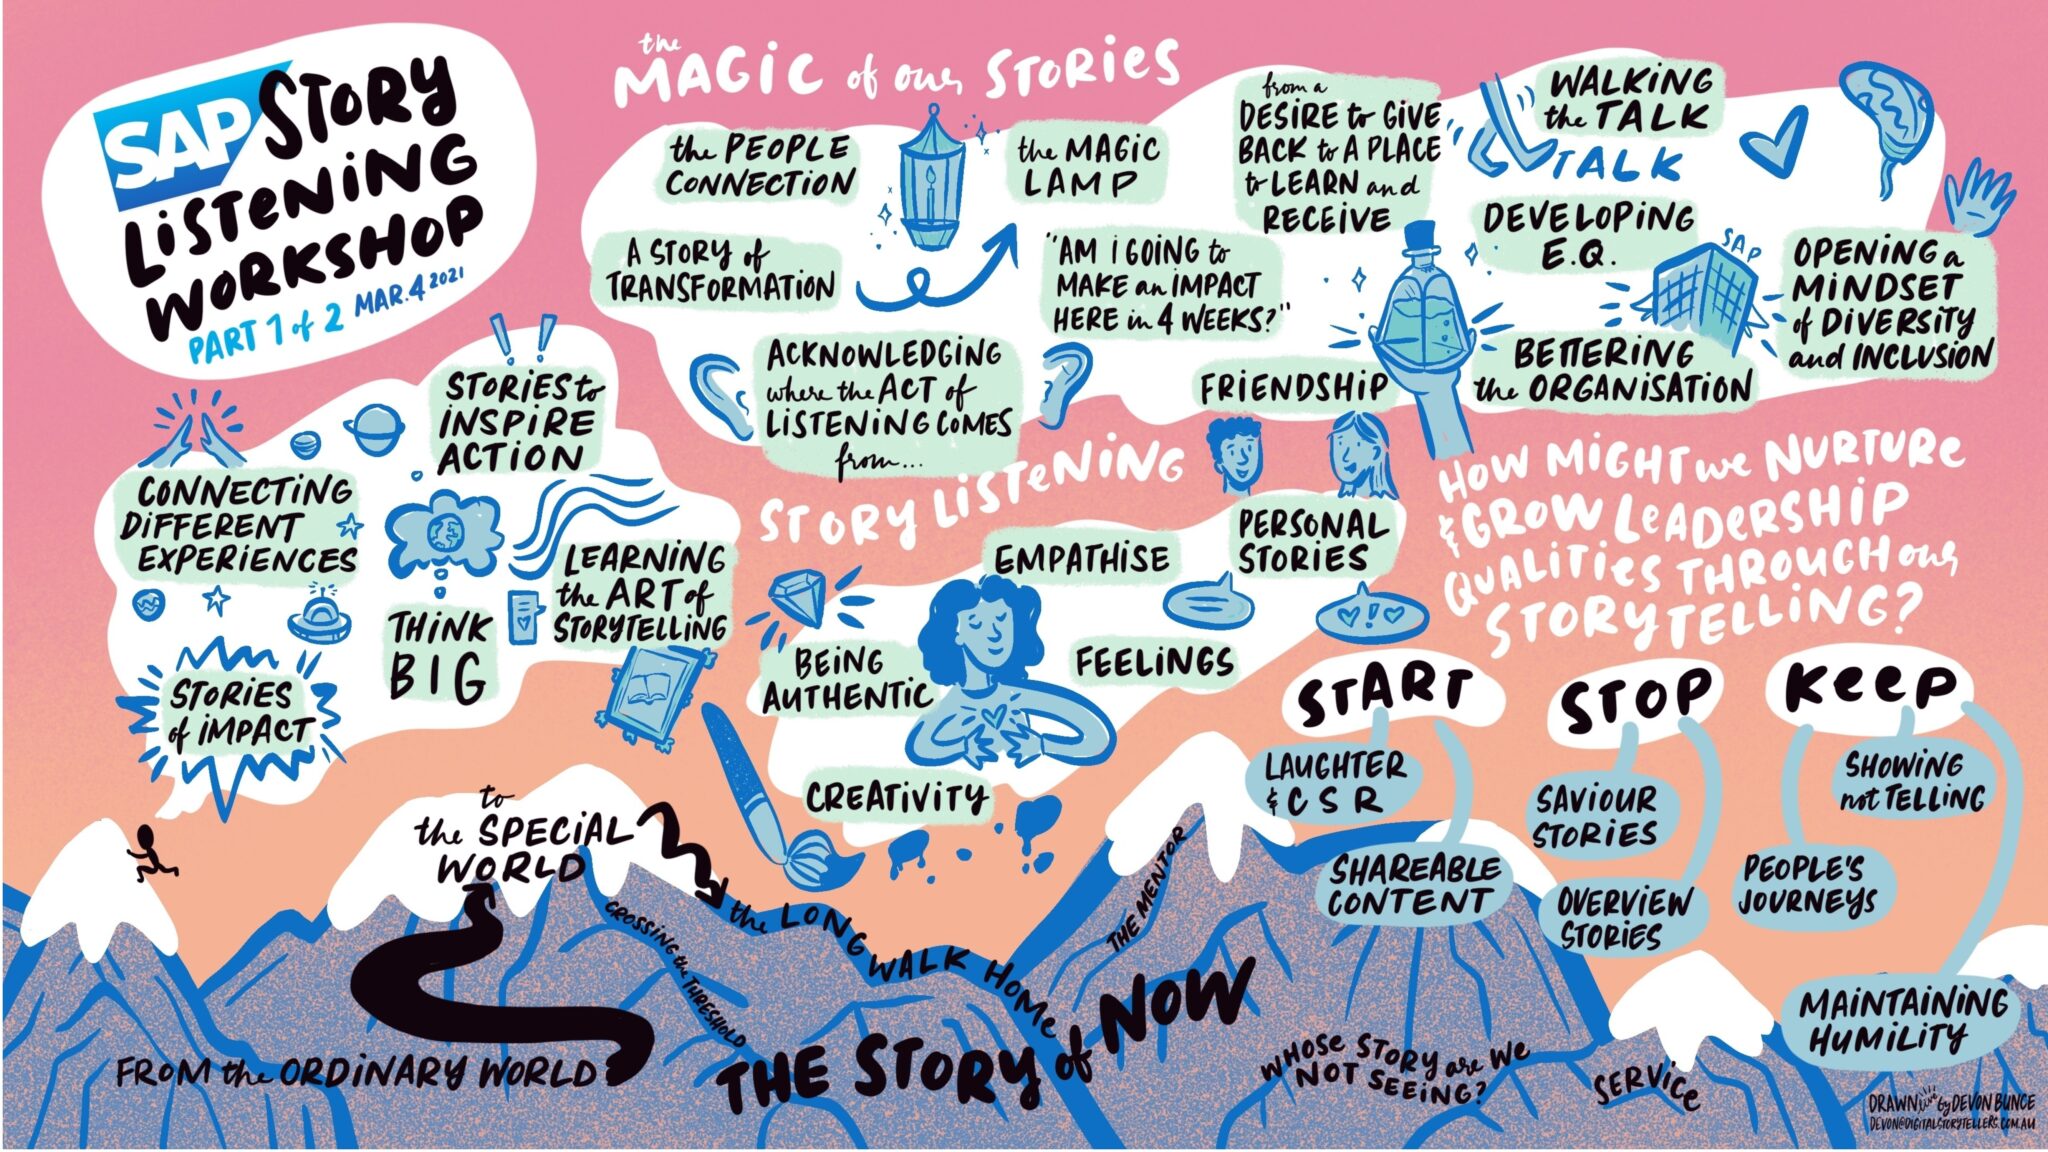 SAP STORY
LISTENING
WORKSHOP
PART 1 of 2 MAR.4 2021
the
MAGIC of our STORIES
the PEOPLE
CONNECTION
the MAGIC
LAMP
A STORY of
TRANSFORMATION
"AM I GOING to
MAKE an IMPACT
HERE in 4 WEEKS?"
ACKNOWLEDGING
where the ACT of
LISTENING COMES
from...
from a
DESIRE to GIVE
BACK to A PLACE
to LEARN and
RECEIVE
WALKING
the TALK
TALK
DEVELOPING
E.Q.
SAP
OPENING a
MINDSET
of DIVERSITY
and INCLUSION
BETTERING
the ORGANISATION
FRIENDSHIP
STORIES to
INSPIRE
ACTION
CONNECTING
DIFFERENT
EXPERIENCES
THINK
BIG
LEARNING
the ART of
STORYTELLING
STORIES
of IMPACT
STORY LISTENING
EMPATHISE
PERSONAL
STORIES
BEING
AUTHENTIC
FEELINGS
CREATIVITY
HOW MIGHT we NURTURE
& GROW LEADERSHIP
QUALITIES THROUGH our
STORYTELLING?
START
LAUGHTER
& C S R
SHAREABLE
CONTENT
STOP
SAVIOUR
STORIES
OVERVIEW
STORIES
KEEP
SHOWING
not TELLING
PEOPLE'S
JOURNEYS
MAINTAINING
HUMILITY
FROM the ORDINARY WORLD
to
the SPECIAL
WORLD
CROSSING the THRESHOLD
the LONG WALK HOME
THE MENTOR
THE STORY of NOW
WHOSE STORY are WE
NOT SEEING?
SERVICE
DRAWN live by DEVON BUNCE
DEVON@DIGITALSTORYTELLERS.COM.AU